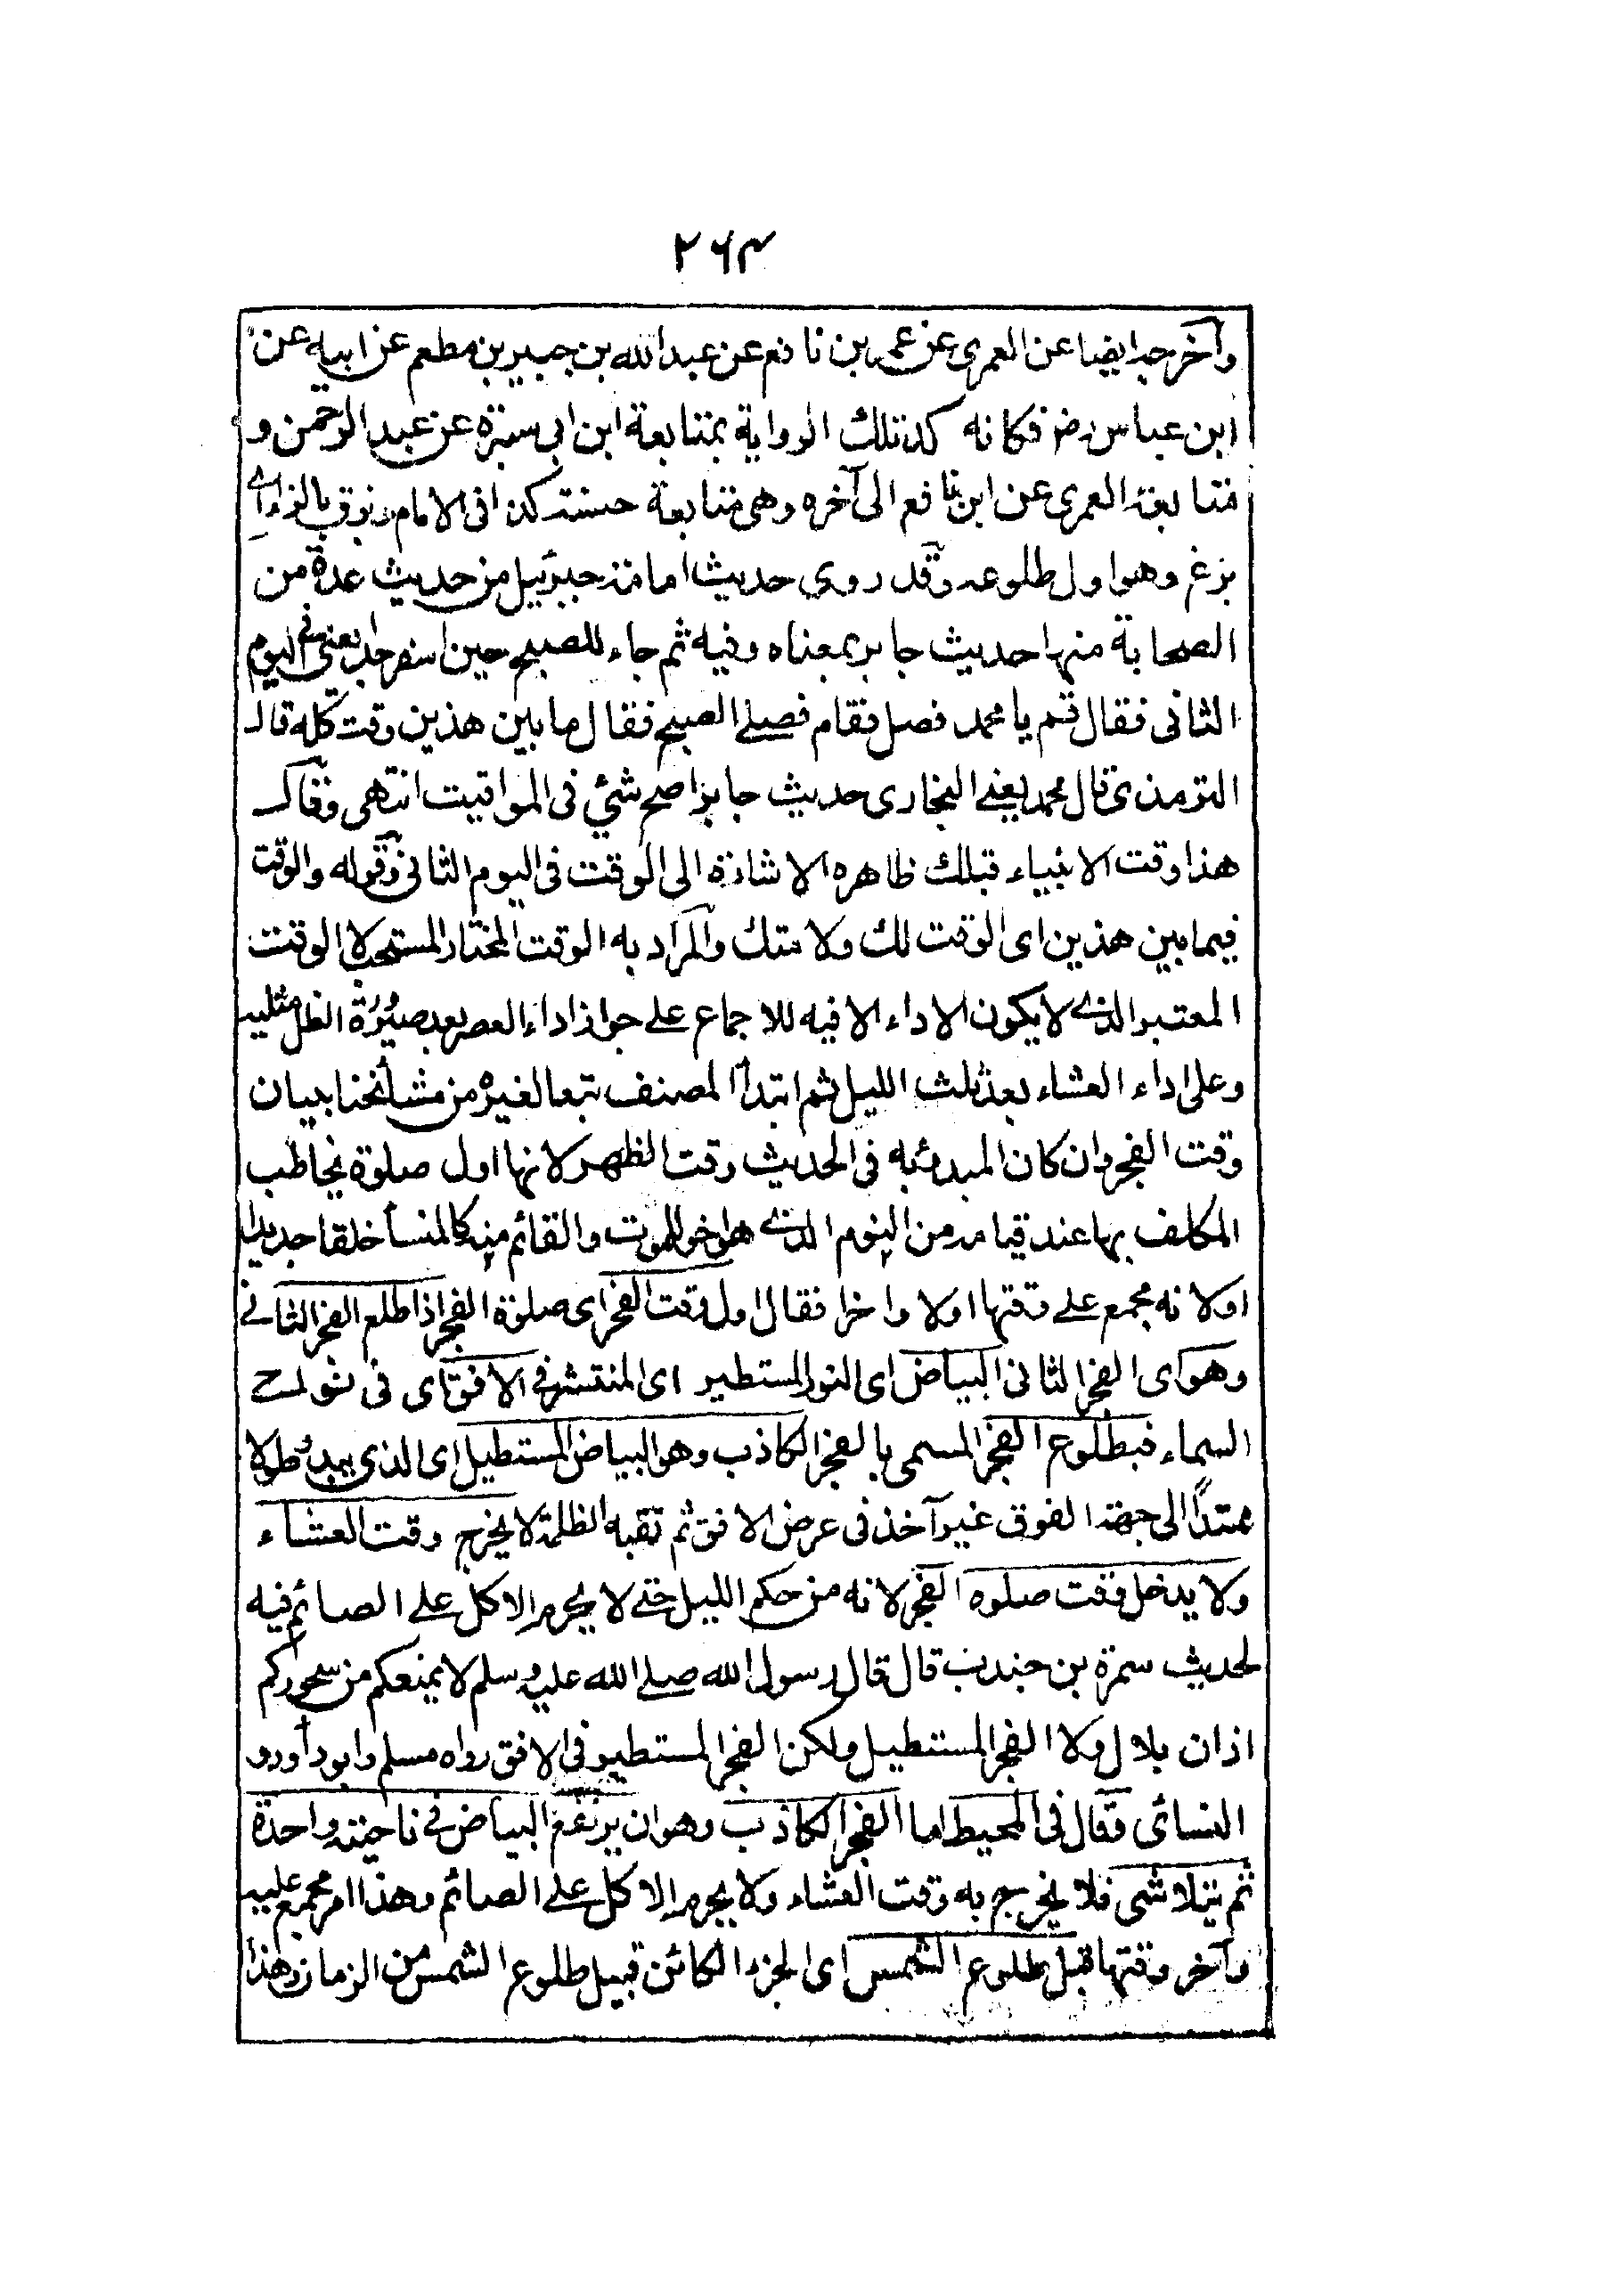 ۲۶۴
وآخرجه ايضا عن العمرى عن عمر بن نافع عن عبدالله بن جبير بن مطعم عن ابيه عن
ابن عباس رض فكانه كد تلك الرواية بمتابعة ابن ابى سبرة عن عبد الرحمن و
متابعة العمرى عن ابن نافع الى آخره وهى متابعة حسنة كذا فى الامام وبرق بالزاء اے
بزغ وهو اول طلوعه وقد روي حديث امامة جبرئيل من حديث عدة من
الصحابة منها حديث جابر بمعناه وفيه ثم جاء للصبح حين اسفر جدا يعنى فى اليوم
الثانى فقال قم يا محمد فصل فقام فصلے الصبح فقال ما بين هذين وقت كله قال
الترمذى قال محمد يعنے البخارى حديث جابر اصح شئ فى المواقيت انتهى وقال
هذا وقت الانبياء قبلك ظاهره الاشارة الى الوقت فى اليوم الثانى وقوله والوقت
فيما بين هذين اى الوقت لك ولامتك والمراد به الوقت المختار المستحب لا الوقت
المعتبر الذے لا يكون الاداء الا فيه للاجماع على جواز اداء العصر بعد صيرورة الظل مثليه
وعلى اداء العشاء بعد ثلث الليل ثم ابتدأ المصنف تبعا لغيره من مشائخنا ببيان
وقت الفجر وان كان المبدئ به فى الحديث وقت الظهر لانها اول صلوة يخاطب
المكلف بها عند قيامه من النوم الذے هو اخو الموت والقائم منه كالمنسأ خلقا جديدا
اولانه مجمع علے وقتها اولا واخرا فقال اول وقت الفجر اى صلوة الفجر اذا طلع الفجر الثانے
وهو اى الفجر الثانى البياض اى النور المستطير اى المنتشر فے الافق اى فى نواحے
السماء فبطلوع الفجر المسمى بالفجر الكاذب وهو البياض المستطيل اى الذى يبدو طولا
ممتدًا الى جهة الفوق غير آخذ فى عرض الافق ثم تعقبه الظلمة لا يخرج وقت العشاء
ولا يدخل وقت صلوه الفجر لانه من حكم الليل حتے لا يحرم الاكل علے الصائم فيه
لحديث سمرة بن جندب قال قال رسول الله صلے الله عليه وسلم لا يمنعكم من سحوركم
اذان بلال ولا الفجر المستطيل ولكن الفجر المستطير فى الافق رواه مسلم وابوداؤد و
النسائى وقال فى المحيط اما الفجر الكاذب وهو ان يرتفع البياض فے ناحية واحدة
ثم يتلاشى فلا يخرج به وقت العشاء ولا يحرم الاكل علے الصائم وهذا امر مجمع عليه
وآخر وقتها قبل طلوع الشمس اى الجزء الكائن قبيل طلوع الشمس من الزمان وهذا